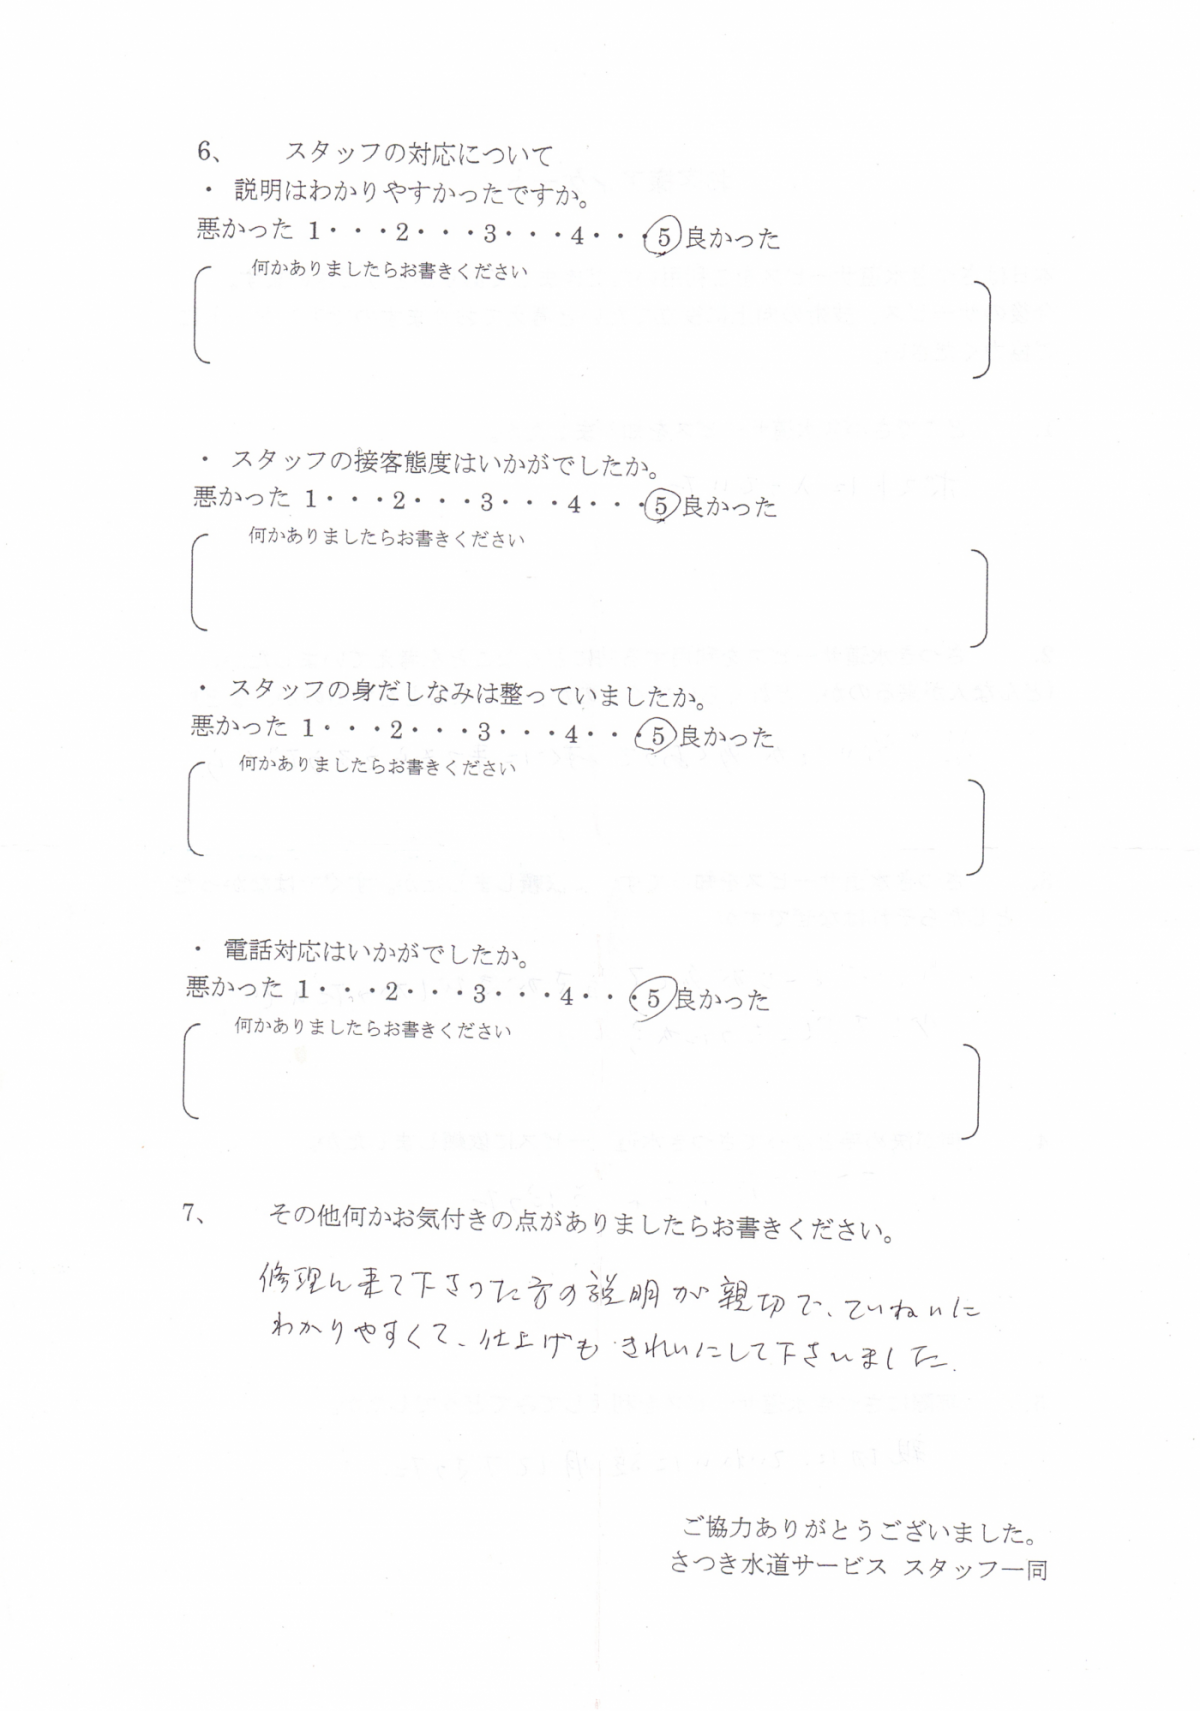 6、 スタッフの対応について
・ 説明はわかりやすかったですか。
悪かった 1・・・2・・・3・・・4・・・5良かった
何かありましたらお書きください
・ スタッフの接客態度はいかがでしたか。
悪かった 1・・・2・・・3・・・4・・・5良かった
何かありましたらお書きください
・ スタッフの身だしなみは整っていましたか。
悪かった 1・・・2・・・3・・・4・・・5良かった
何かありましたらお書きください
・ 電話対応はいかがでしたか。
悪かった 1・・・2・・・3・・・4・・・5良かった
何かありましたらお書きください
7、 その他何かお気付きの点がありましたらお書きください。
修理に来て下さった方の説明が親切で、ていねいに
わかりやすくて、仕上げもきれいにして下さいました.
ご協力ありがとうございました。
さつき水道サービス スタッフ一同